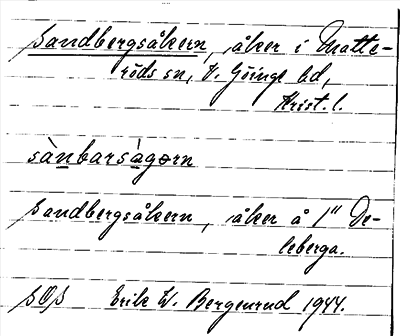 Sandbergsåkern, åker i Matte-
röds sn, V. Göinge hd,
Krist. l.
sànbarsàgorn
Sandbergsåkern, åker å 1" De-
leberga.
SOS Erik W. Bergenrud 1944.